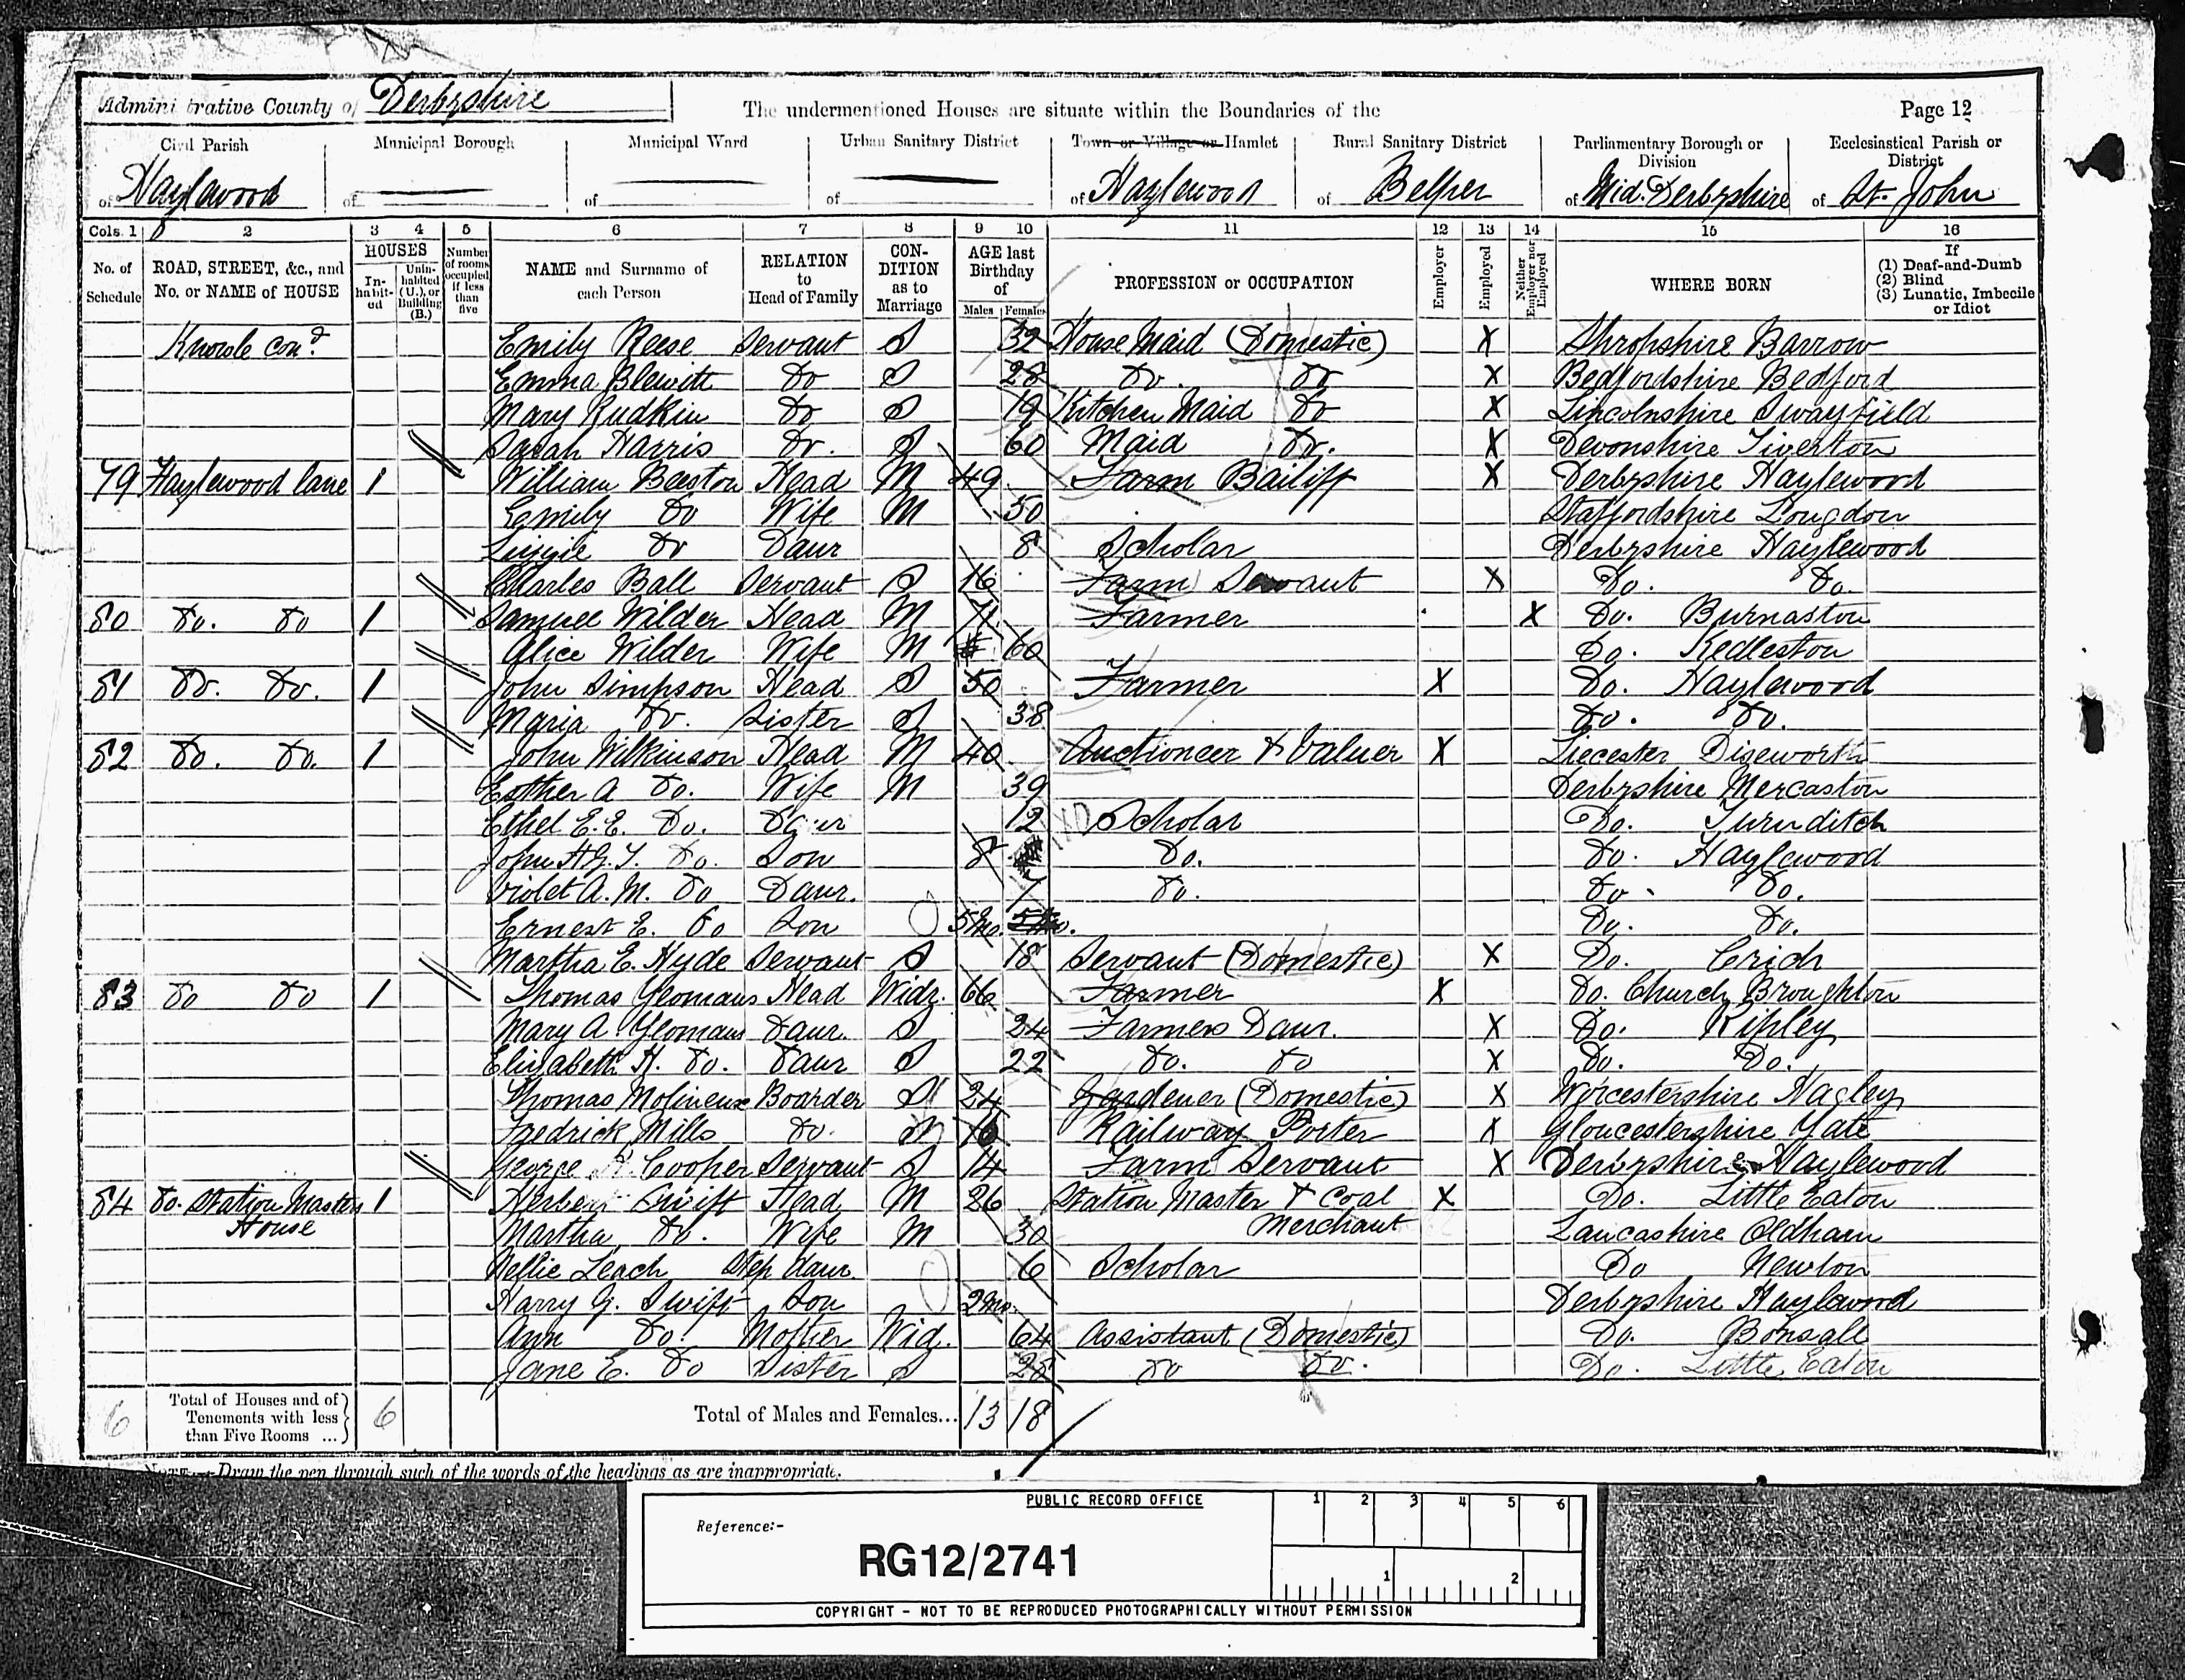 Administrative County of Derbyshire
The undermentioned Houses are situate within the Boundaries of the
Page 12
Civil Parish of Hazlewood
Municipal Borough of
Municipal Ward of
Urban Sanitary District of
Town or Village or Hamlet of Hazlewood
Rural Sanitary District of Belper
Parliamentary Borough or Division of Mid. Derbyshire
Ecclesiastical Parish or District of St. John
Cols. 1 2 3 4 5 6 7 8 9 10 11 12 13 14 15 16
No. of Schedule
ROAD, STREET, &c., and No. or NAME of HOUSE
HOUSES
Inhabited
Uninhabited (U.), or Building (B.)
Number of rooms occupied if less than five
NAME and Surname of each Person
RELATION to Head of Family
CONDITION as to Marriage
AGE last Birthday of
Males Females
PROFESSION or OCCUPATION
Employer
Employed
Neither Employer nor Employed
WHERE BORN
If (1) Deaf-and-Dumb (2) Blind (3) Lunatic, Imbecile or Idiot
Knowle cond. Emily Reese Servant S 32 House Maid (Domestic) X Shropshire Barrow
Emma Blewitt Do S 28 Do. Do X Bedfordshire Bedford
Mary Rudkin Do S 19 Kitchen Maid Do X Lincolnshire Swayfield
Sarah Harris Do. S 60 Maid Do. X Devonshire Tiverton
79 Hazlewood lane 1 William Beeston Head M 49 Farm Bailiff X Derbyshire Hazlewood
Emily Do Wife M 50 Staffordshire Longdon
Lizzie Do Daur 8 Scholar Derbyshire Hazlewood
Charles Ball Servant S 16 Farm Servant X Do. Do.
80 Do. Do 1 Samuel Wilder Head M 71 Farmer X Do. Burnaston
Alice Wilder Wife M 60 Do. Kedleston
81 Do. Do. 1 John Simpson Head S 50 Farmer X Do. Hazlewood
Maria Do. Sister S 38 Do. Do.
82 Do. Do. 1 John Wilkinson Head M 40 Auctioneer & Valuer X Liecester Diseworth
Esther A Do. Wife M 39 Derbyshire Mercaston
Ethel E. E. Do. Daur 12 Scholar Do. Turnditch
John H. G. T. Do. Son 8 Do. Do. Hazlewood
Violet A. M. Do Daur. 7 Do. Do. Do.
Ernest E. Do Son 5 Mo. Do. Do.
Martha E. Hyde Servant S 18 Servant (Domestic) X Do. Crich
83 Do Do 1 Thomas Yeomans Head Widr. 66 Farmer X Do. Church Broughton
Mary A Yeomans Daur. S 24 Farmers Daur. X Do. Ripley
Elizabeth H. Do. Daur S 22 Do. Do X Do. Do.
Thomas Molineux Boarder S 24 Gardener (Domestic) X Worcestershire Hagley
Fredrick Mills Do. 16 Railway Porter X Gloucestershire Yate
George Cooper Servant S 14 Farm Servant X Derbyshire Hazlewood
84 Do. Station Masters House 1 Herbert Swift Head M 26 Station Master & Coal Merchant X Do. Little Eaton
Martha Do. Wife M 30 Lancashire Oldham
Nellie Leach Step daur. 6 Scholar Do Newton
Harry G. Swift Son 2 Mo. Derbyshire Hazlewood
Ann Do. Mother Wid. 64 Assistant (Domestic) Do. Bonsall
Jane E. Do Sister S 28 Do Do. Do. Little Eaton
6 Total of Houses and of Tenements with less than Five Rooms ... 6 Total of Males and Females... 13 18
NOTE.—Draw the pen through such of the words of the headings as are inappropriate.
PUBLIC RECORD OFFICE
1 2 3 4 5 6
Reference:-
RG12/2741
1 2
COPYRIGHT - NOT TO BE REPRODUCED PHOTOGRAPHICALLY WITHOUT PERMISSION